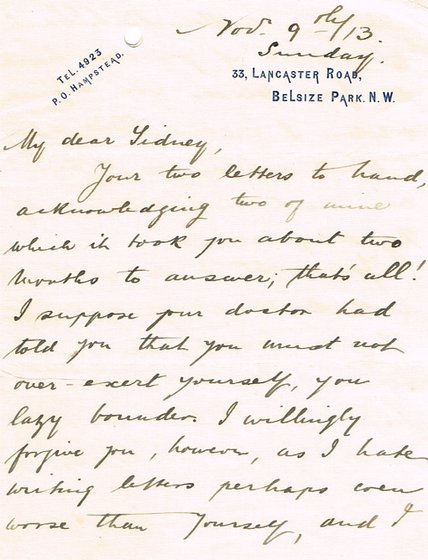 Nov. 9th/13.
Sunday.
TEL. 4923
P.O. HAMPSTEAD.
33, LANCASTER ROAD,
BELSIZE PARK. N.W.
My dear Sidney,
Your two letters to hand,
acknowledging two of mine
which it took you about two
months to answer; that's all!
I suppose your doctor had
told you that you must not
over-exert yourself, you
lazy bounder. I willingly
forgive you, however, as I hate
writing letters perhaps even
worse than yourself, and I